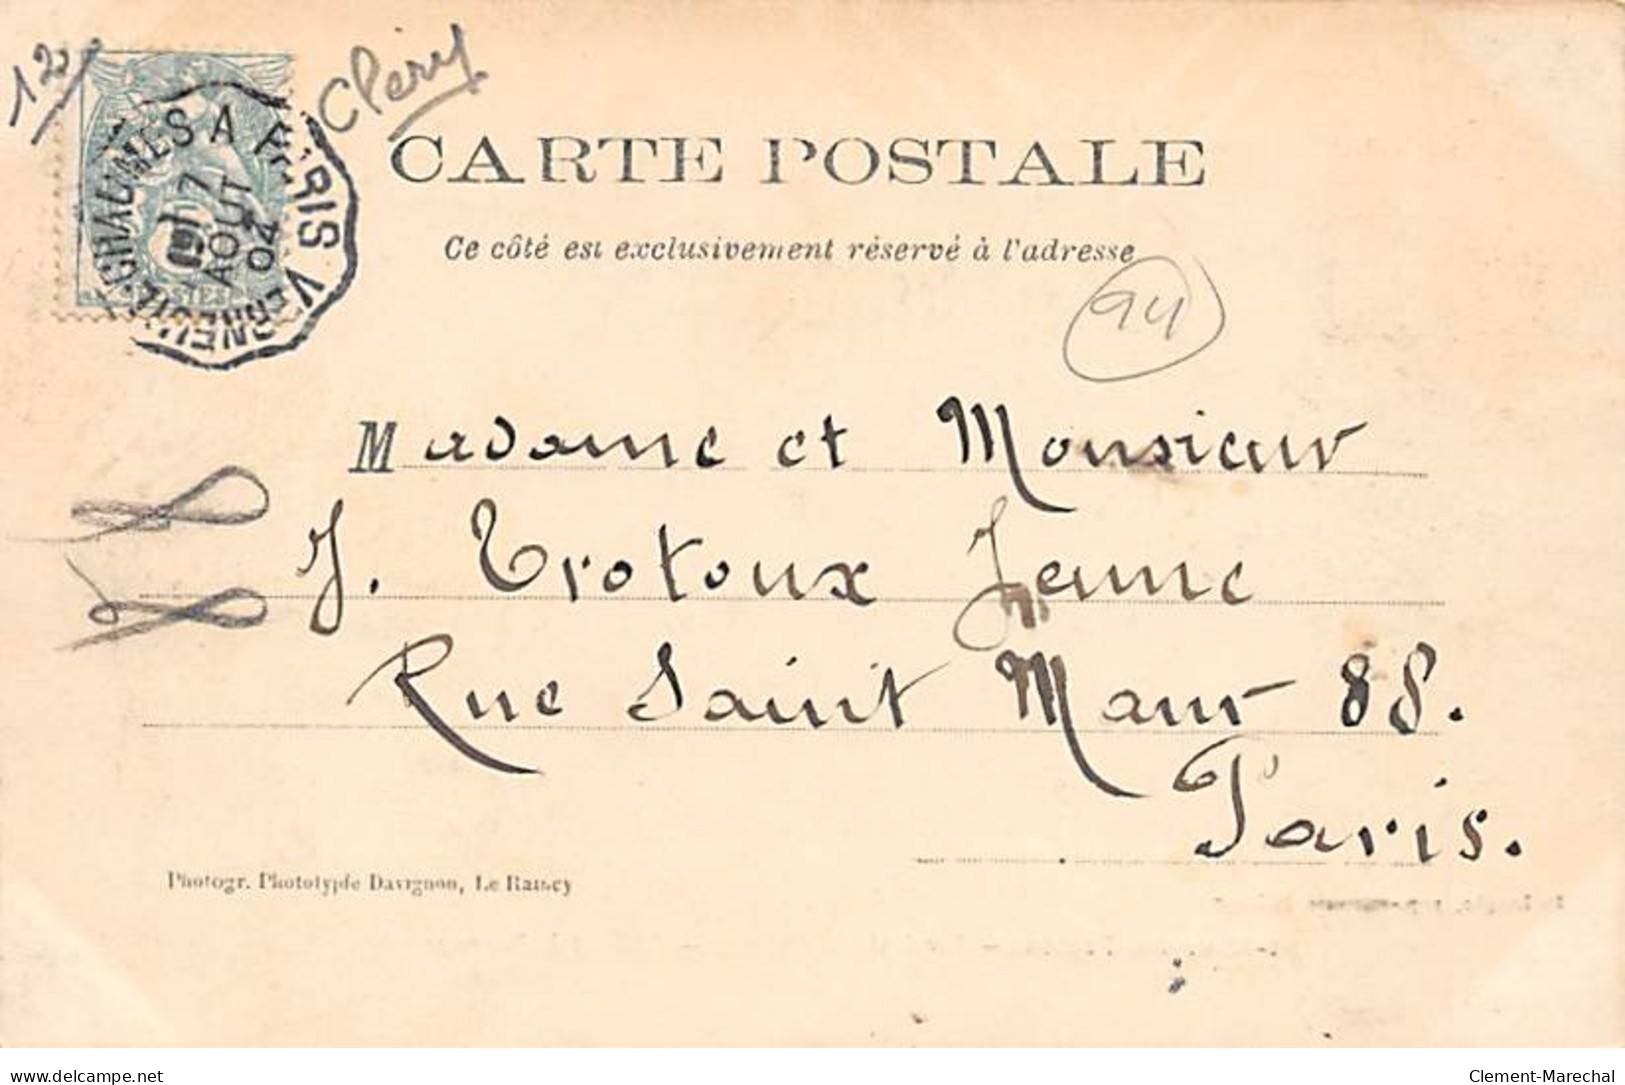 12
Clery
CARTE POSTALE
Ce côté est exclusivement réservé à l'adresse
VERNEUIL-CHAUMES A PARIS
17
AOUT
04
94
Madame et Monsieur
J. Trotoux Jeune
Rue Saint Maur 88.
Paris.
Photogr. Phototypie Davignon, Le Raincy
delcampe.net
Clement-Marechal